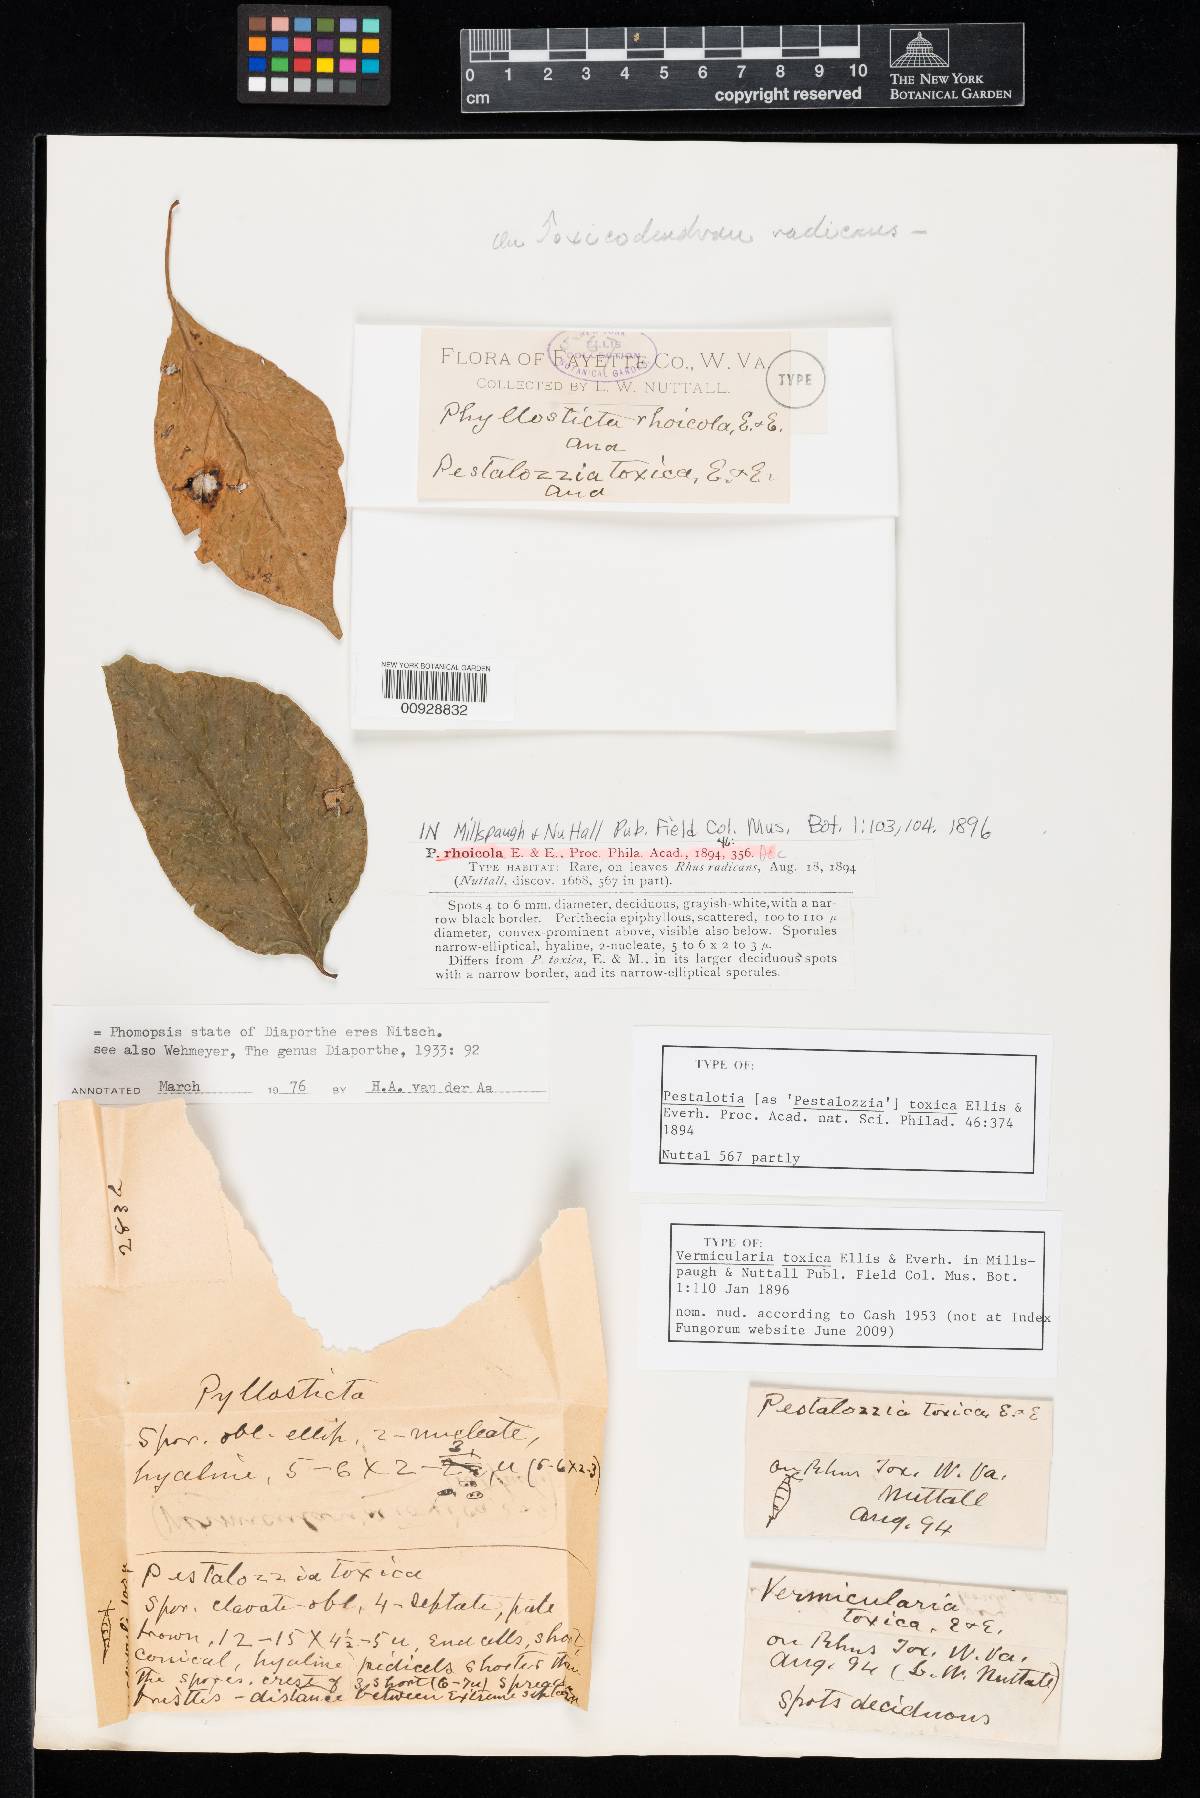 0 1 2 3 4 5 6 7 8 9 10
cm
copyright reserved
THE NEW YORK
BOTANICAL GARDEN
on Toxicodendron radicans —
ELLIS
COLLECTION
BOTANICAL GARDEN
FLORA OF FAYETTE CO., W. VA.
COLLECTED BY L. W. NUTTALL.
TYPE
Phyllosticta rhoicola, E. & E.
and
Pestalozzia toxica, E. & E.
and
NEW YORK BOTANICAL GARDEN
00928832
IN Millspaugh & Nuttall Pub. Field Col. Mus. Bot. 1:103,104. 1896
46:
P. rhoicola E. & E., Proc. Phila. Acad., 1894, 356.
TYPE HABITAT: Rare, on leaves Rhus radicans, Aug. 18, 1894
(Nuttall, discov. 1668, 567 in part).
Spots 4 to 6 mm. diameter, deciduous, grayish-white, with a nar-
row black border. Perithecia epiphyllous, scattered, 100 to 110 µ
diameter, convex-prominent above, visible also below. Sporules
narrow-elliptical, hyaline, 2-nucleate, 5 to 6 x 2 to 3 µ.
Differs from P. toxica, E. & M., in its larger deciduous spots
with a narrow border, and its narrow-elliptical sporules.
= Phomopsis state of Diaporthe eres Nitsch.
see also Wehmeyer, The genus Diaporthe, 1933: 92
ANNOTATED March 1976 BY H.A. van der Aa
TYPE OF:
Pestalotia [as 'Pestalozzia'] toxica Ellis &
Everh. Proc. Acad. nat. Sci. Philad. 46:374
1894
Nuttal 567 partly
TYPE OF:
Vermicularia toxica Ellis & Everh. in Mills-
paugh & Nuttall Publ. Field Col. Mus. Bot.
1:110 Jan 1896
nom. nud. according to Cash 1953 (not at Index
Fungorum website June 2009)
Pyllosticta
Spor. obl. ellip, 2-nucleate,
hyaline, 5-6 X 2-3 µ (5-6X2-3)
Pestalozzia toxica
Spor. clavate-obl, 4-septate, pale
brown, 12-15 X 4½-5 u, end cells, short,
conical, hyaline, pedicels shorter than
the spores. crest of 3 short (6-7u) spreading
bristles - distance between extreme septa
Pestalozzia toxica, E. & E
on Rhus Tox. W. Va.
Nuttall
Aug. 94
Vermicularia
toxica, E & E.
on Rhus Tox. W. Va.
Aug. 94 (L. W. Nuttall)
spots deciduous